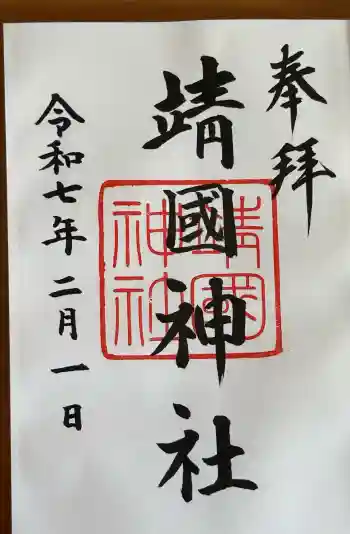 奉拝
靖國神社
靖國
神社
令和七年二月一日